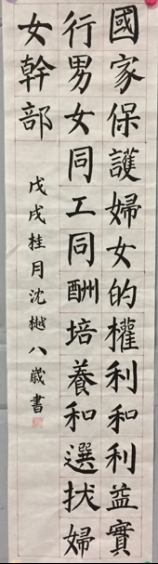 國家保護婦女的權利和利益實
行男女同工同酬培養和選拔婦
女幹部
戊戌桂月沈樾八歲書